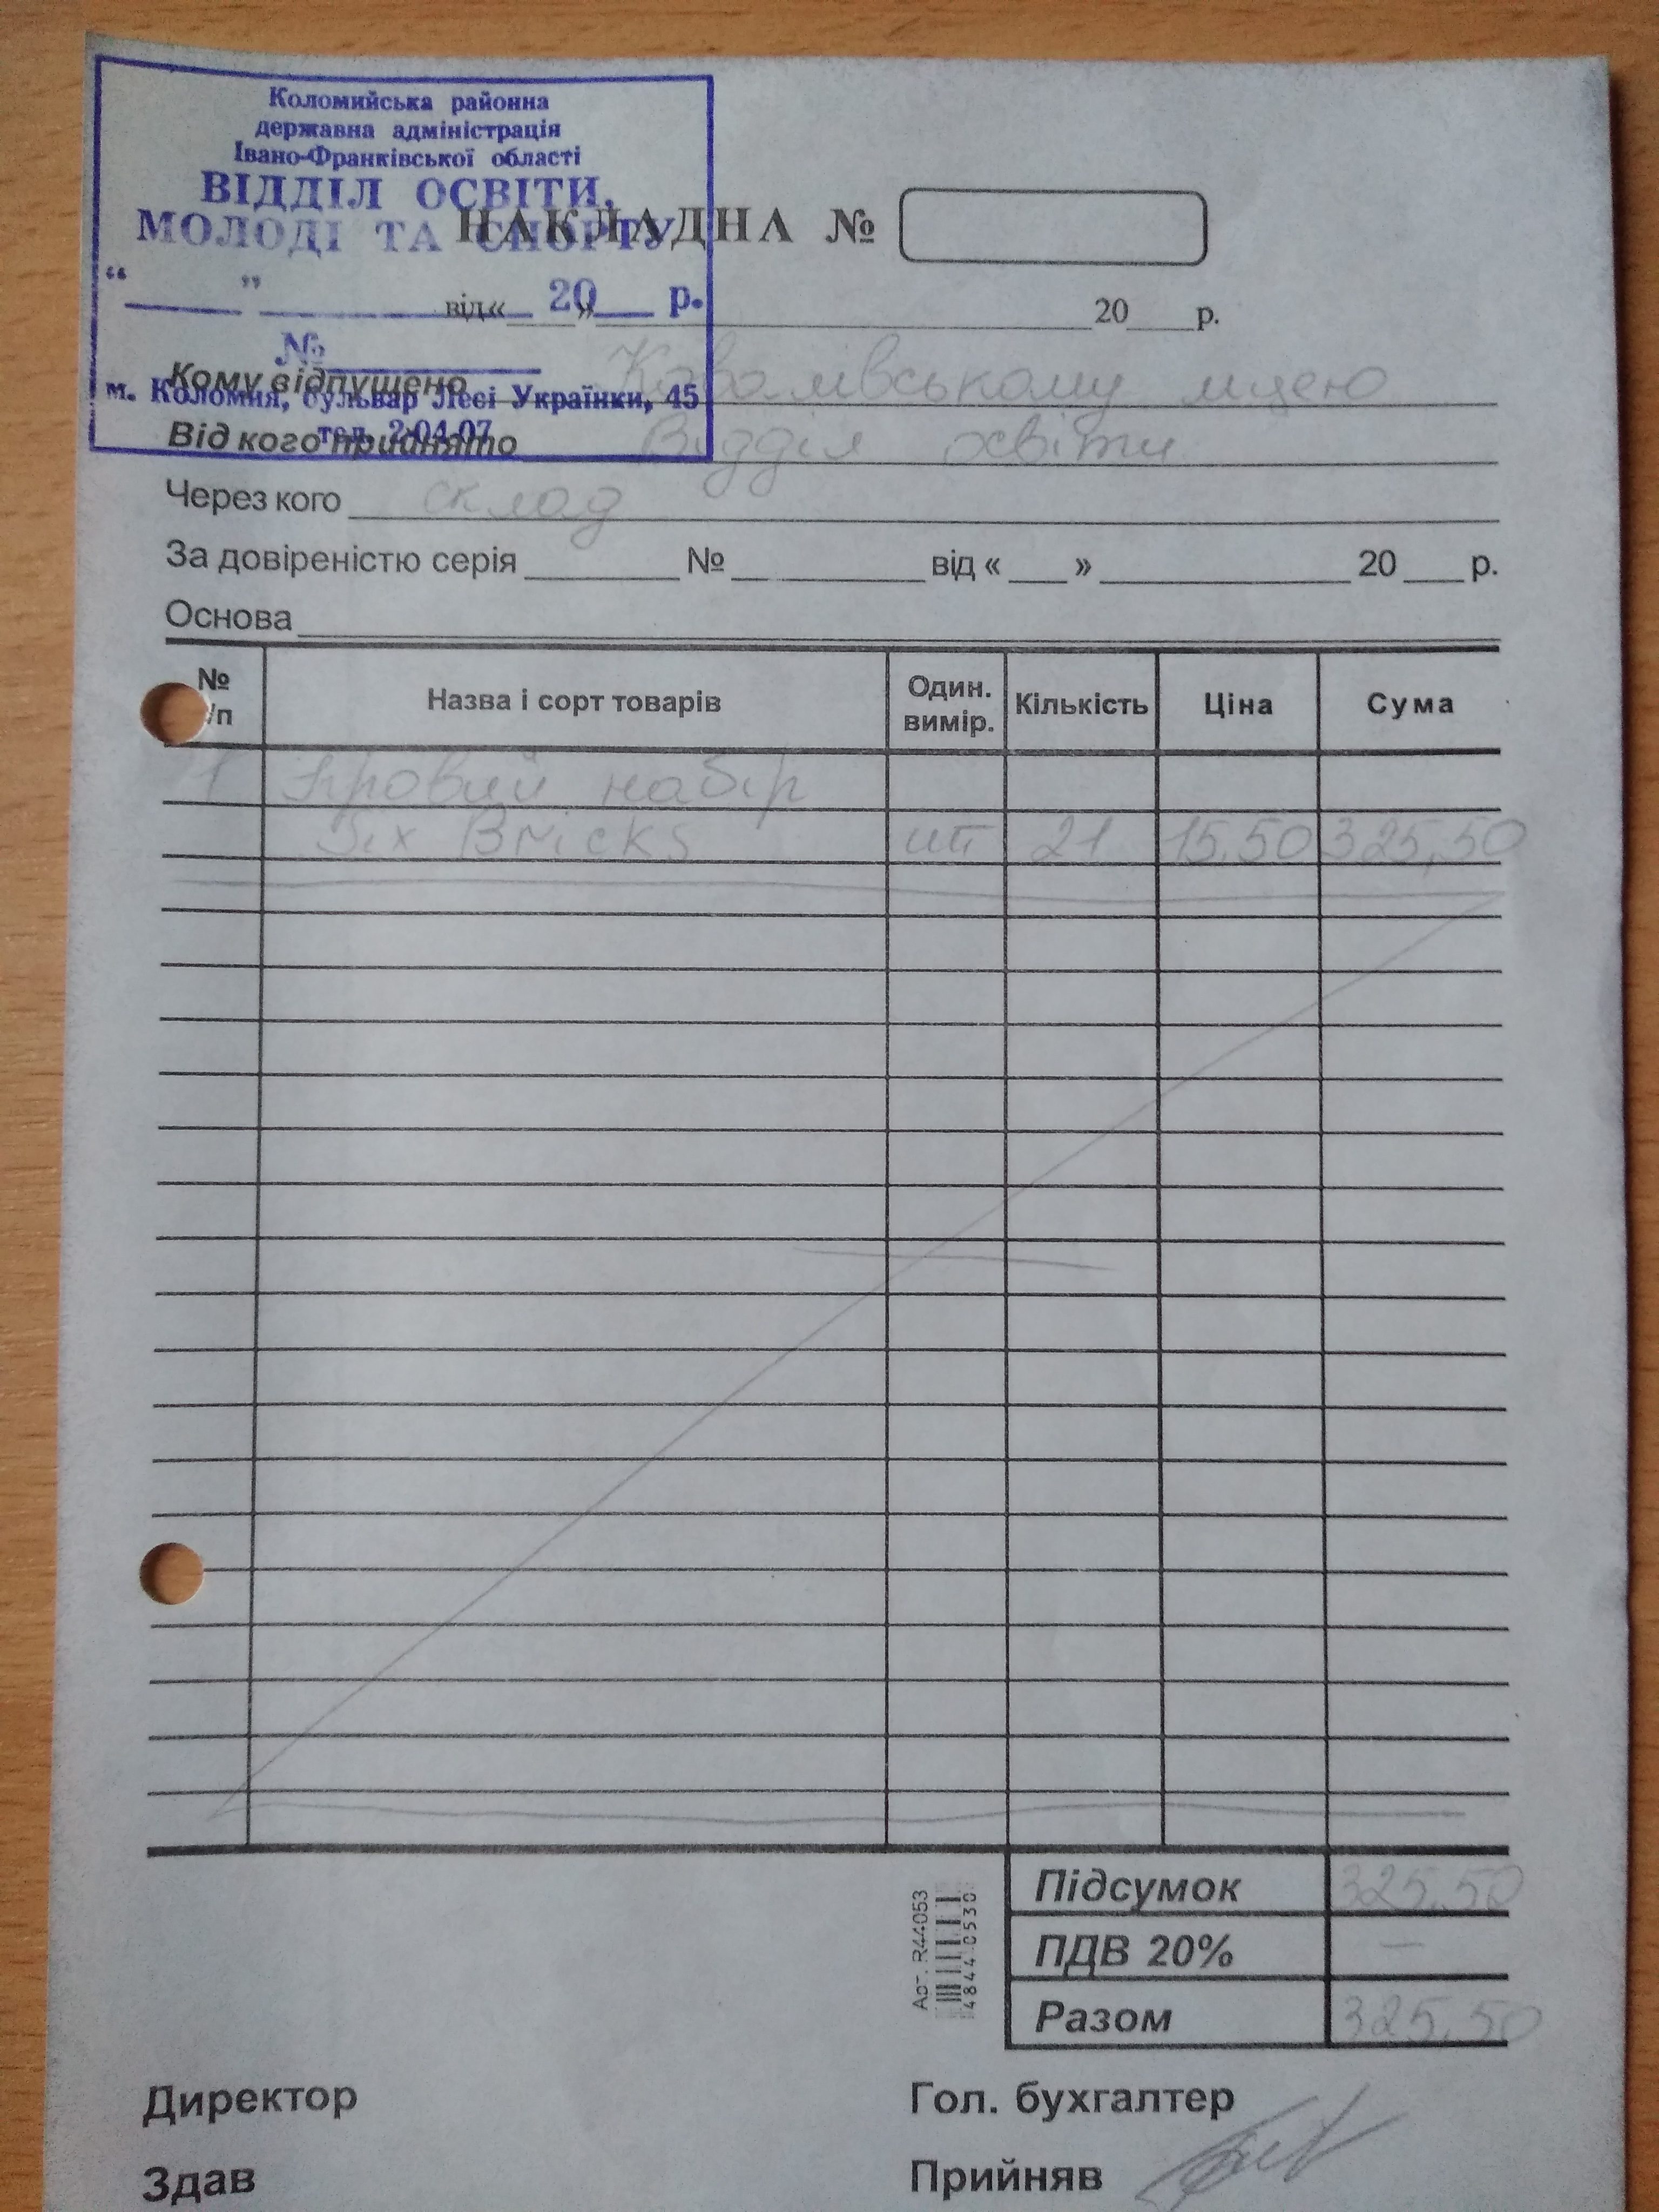 Коломийська районна
державна адміністрація
Івано-Франківської області
ВІДДІЛ ОСВІТИ,
МОЛОДІ ТА СПОРТУ
“ ” 20 р.
№
м. Коломия, бульвар Лесі Українки, 45
тел. 2-04-07
НАКЛАДНА №
від « » 20 р.
Кому відпущено ліцею
Від кого прийнято Відділ освіти
Через кого склад
За довіреністю серія № від « » 20 р.
Основа
№ /п Назва і сорт товарів Один. вимір. Кількість Ціна Сума
1 Ігровий набір
Six Bricks шт 21 15,50 325,50
Підсумок 325,50
ПДВ 20% —
Разом 325,50
Арт. R44053
48440530
Директор Гол. бухгалтер
Здав Прийняв